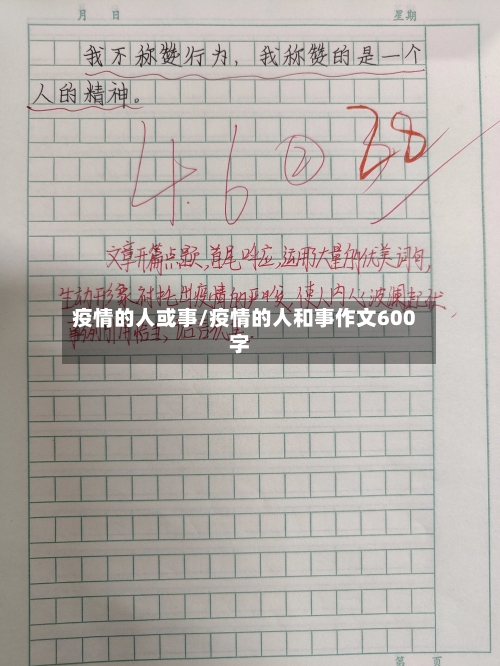 月 日 星期
我不称赞行为，我称赞的是一个
人的精神。
4.6 ② 38
文章开篇点题，首尾呼应，运用大量的优美词句，
生动形象衬托出疫情的严峻，使人内心波澜起伏，
疫情的人或事/疫情的人和事作文600
字
第 页